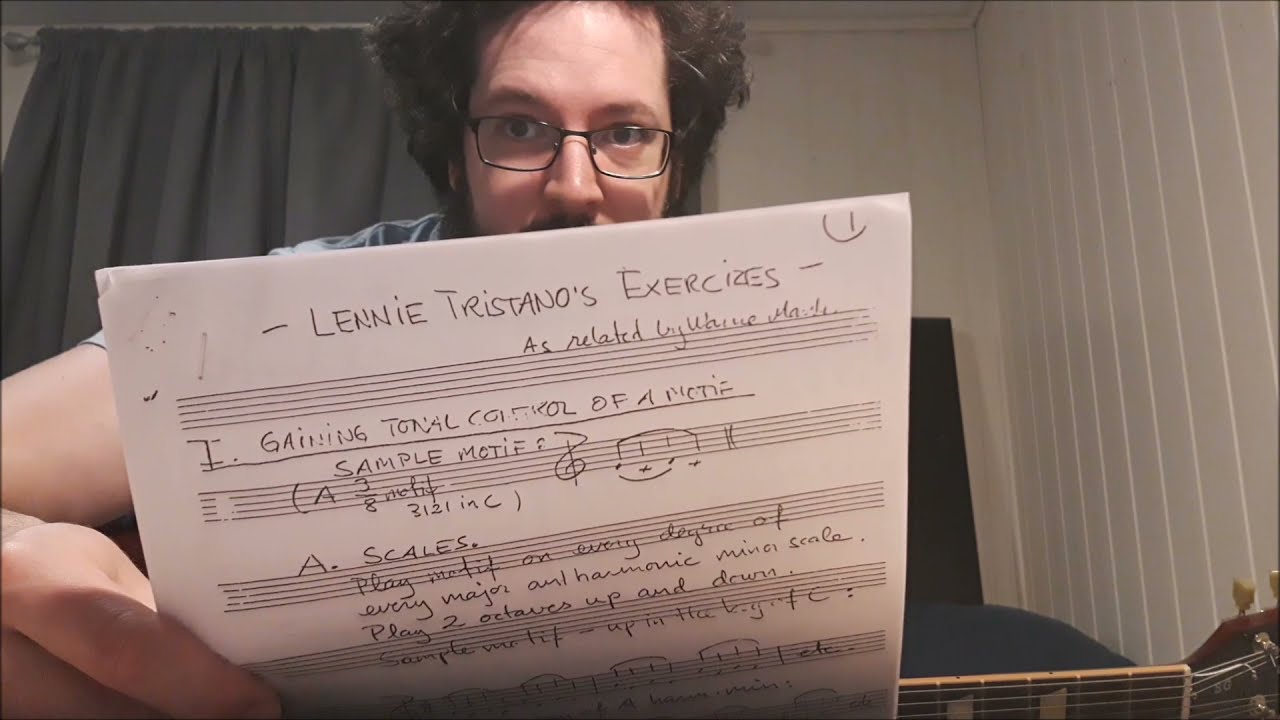 1
- LENNIE TRISTANO'S EXERCIZES -
As related by Warne Marsh.
I. GAINING TONAL CONTROL OF A MOTIF
SAMPLE MOTIF:
(A 3/8 motif
3121 in C)
A. SCALES.
Play motif on every degree of
every major and harmonic minor scale.
Play 2 octaves up and down.
Sample motif - up in the key of C:
etc.
of A harm. min:
SG